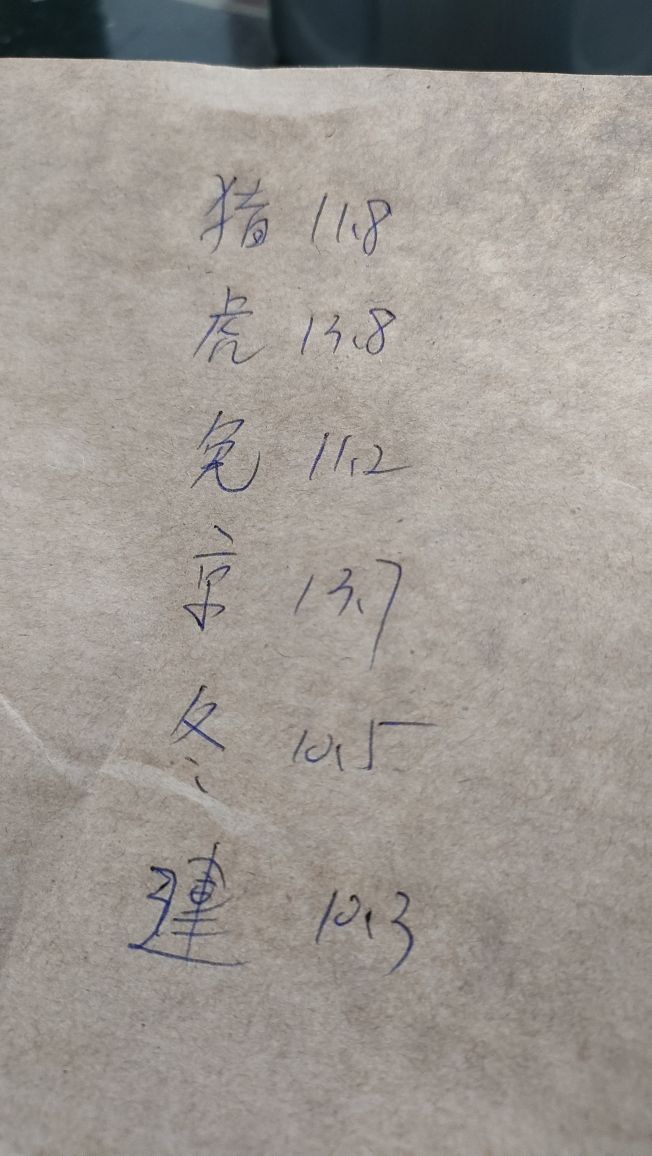 猪 11.8
虎 13.8
兔 11.2
京 13.7
冬 10.5
建 10.3